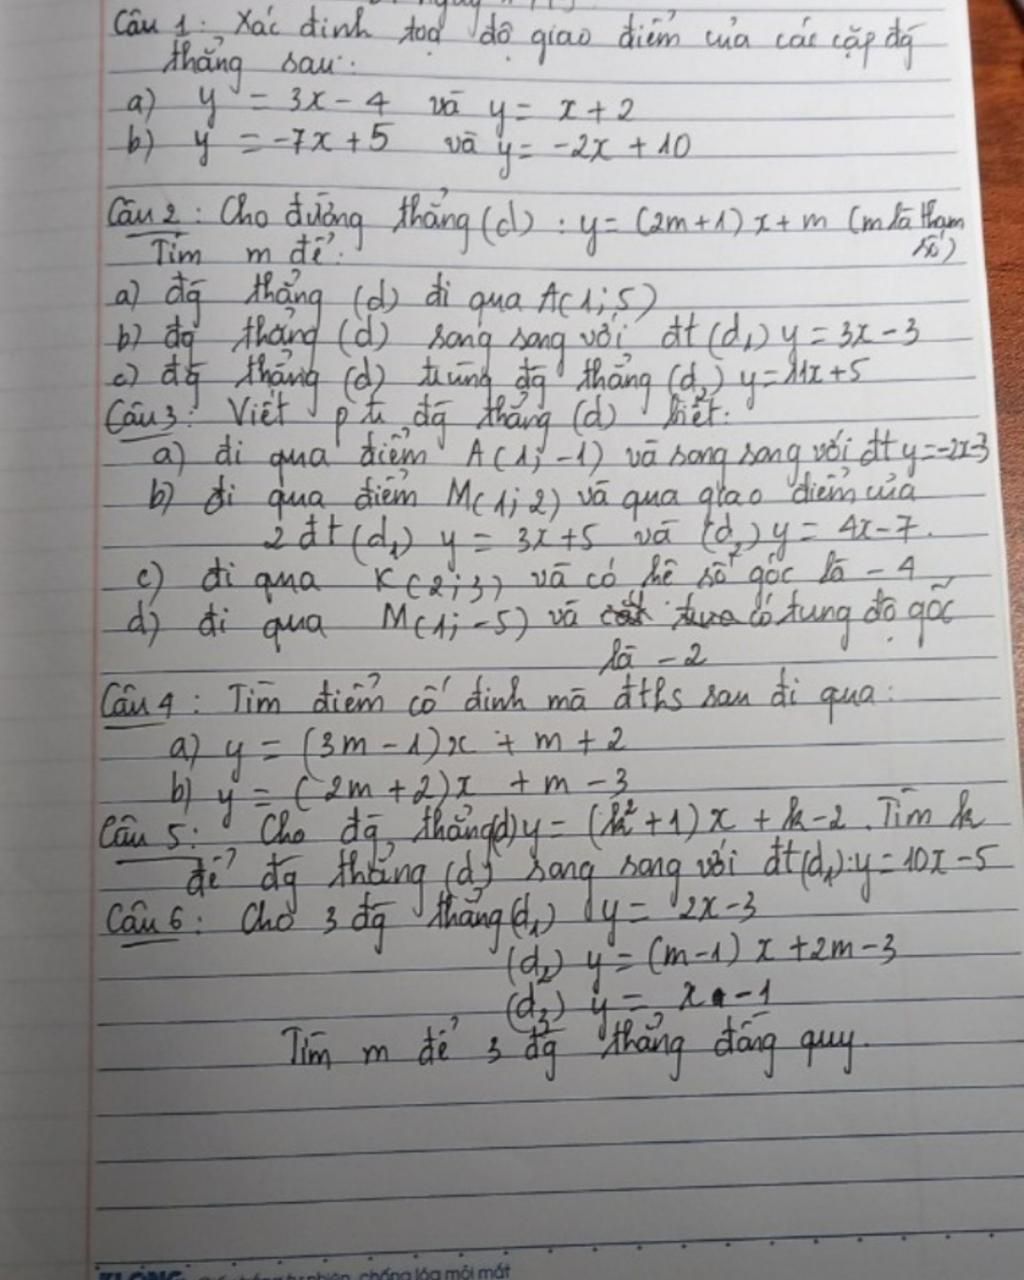 Câu 1: Xác định toạ độ giao điểm của các cặp đg
thẳng sau:
a) y = 3x - 4 và y = x + 2
b) y = -7x + 5 và y = -2x + 10
Câu 2: Cho đường thẳng (d) : y = (2m+1) x + m (m là tham
số)
Tìm m để:
a) đg thẳng (d) đi qua A(1;5)
b) đg thẳng (d) song song với đt (d₁) y = 3x - 3
c) đg thẳng (d) trùng đg thẳng (d₂) y = 11x + 5
Câu 3: Viết pt đg thẳng (d) biết:
a) đi qua điểm A(1; -1) và song song với đt y = -2x-3
b) đi qua điểm M(1; 2) và qua giao điểm của
2 đt (d₁) y = 3x+5 và (d₂) y = 4x-7.
c) đi qua K(2;3) và có hệ số góc là - 4
d) đi qua M(1; -5) và có tung độ gốc
là - 2
Câu 4 : Tìm điểm cố định mà đths sau đi qua:
a) y = (3m - 1)x + m + 2
b) y = (2m + 2)x + m - 3
Câu 5: Cho đg thẳng(d) y = (k² + 1) x + k - 2. Tìm k
để đg thẳng (d) song song với đt(d₁): y = 10x - 5
Câu 6: Cho 3 đg thẳng (d₁) y = 2x - 3
(d₂) y = (m-1) x + 2m - 3
(d₃) y = x - 1
Tìm m để 3 đg thẳng đồng quy.